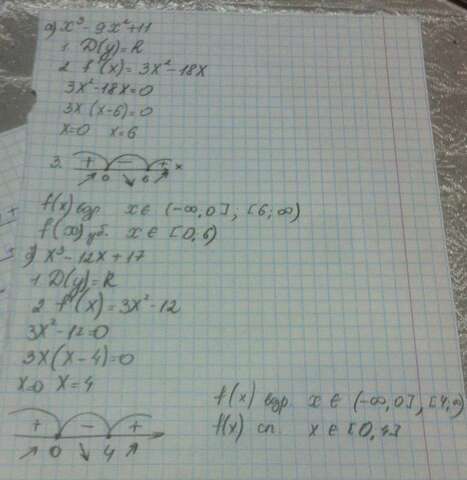 а) x³ - 9x² + 11
1. D(y) = R
2 f'(x) = 3x² - 18x
3x² - 18x = 0
3x (x - 6) = 0
x = 0 x = 6
3. + - + x
0 6
f(x) возр. x ∈ (-∞, 0], [6; ∞)
f(x) уб. x ∈ [0, 6)
x³ - 12x + 17
1 D(y) = R
2 f'(x) = 3x² - 12
3x² - 12 = 0
3x (x - 4) = 0
x = 0 x = 4
+ - +
0 4
f(x) возр. x ∈ (-∞, 0], [4, ∞)
f(x) сп. x ∈ [0, 4]